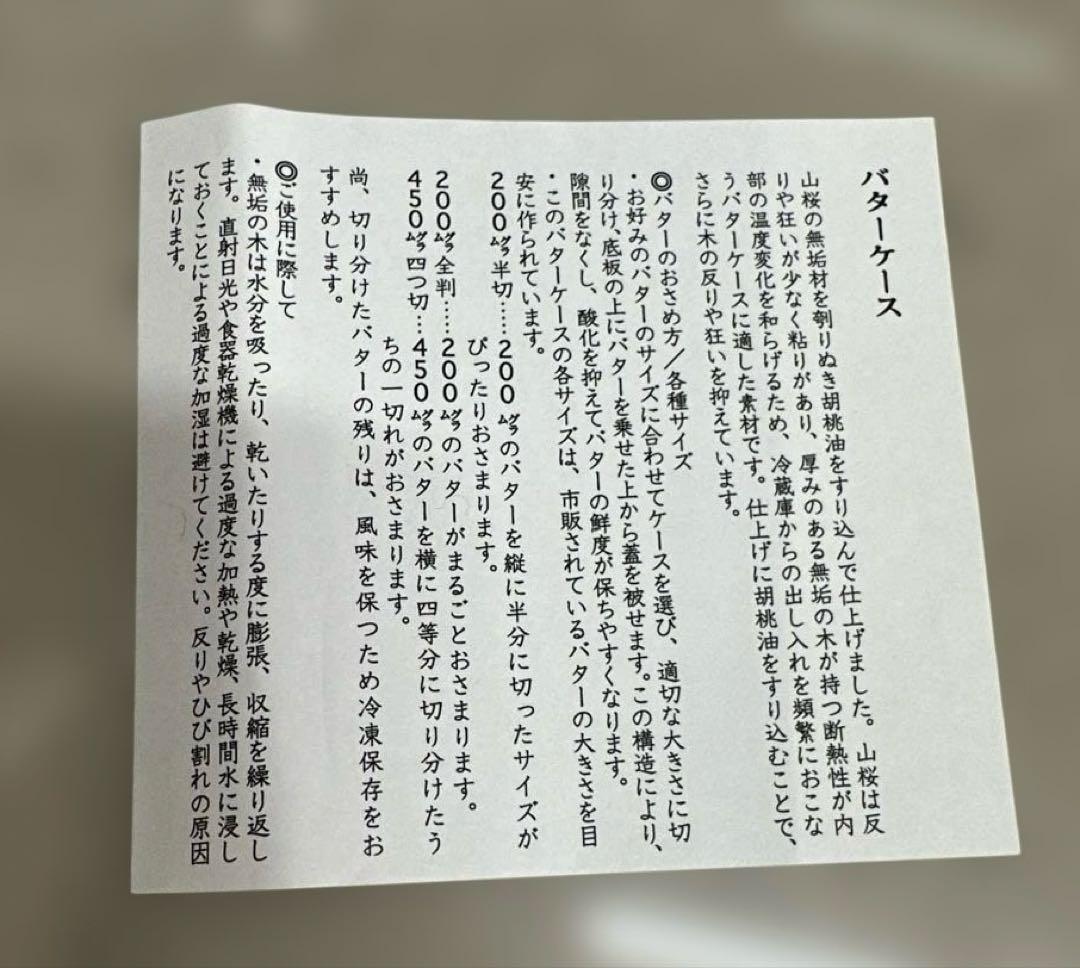 バターケース
山桜の無垢材を刳りぬき胡桃油をすり込んで仕上げました。山桜は反
りや狂いが少なく粘りがあり、厚みのある無垢の木が持つ断熱性が内
部の温度変化を和らげるため、冷蔵庫からの出し入れを頻繁におこな
うバターケースに適した素材です。仕上げに胡桃油をすり込むことで、
さらに木の反りや狂いを抑えています。
◎バターのおさめ方／各種サイズ
・お好みのバターのサイズに合わせてケースを選び、適切な大きさに切
り分け、底板の上にバターを乗せた上から蓋を被せます。この構造により、
隙間をなくし、酸化を抑えてバターの鮮度が保ちやすくなります。
・このバターケースの各サイズは、市販されているバターの大きさを目
安に作られています。
200㌘半切……200㌘のバターを縦に半分に切ったサイズが
ぴったりおさまります。
200㌘全判……200㌘のバターがまるごとおさまります。
450㌘四つ切…450㌘のバターを横に四等分に切り分けたう
ちの一切れがおさまります。
尚、切り分けたバターの残りは、風味を保つため冷凍保存をお
すすめします。
◎ご使用に際して
・無垢の木は水分を吸ったり、乾いたりする度に膨張、収縮を繰り返し
ます。直射日光や食器乾燥機による過度な加熱や乾燥、長時間水に浸し
ておくことによる過度な加湿は避けてください。反りやひび割れの原因
になります。